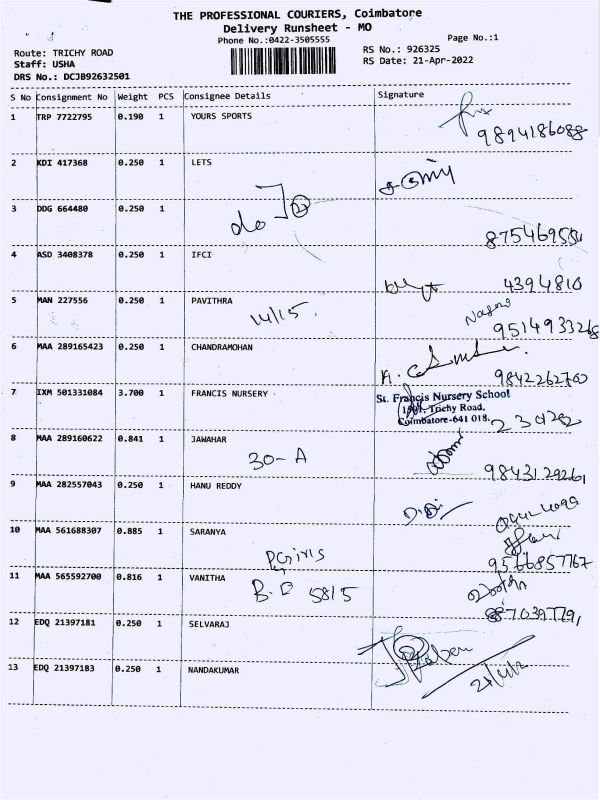 THE PROFESSIONAL COURIERS, Coimbatore
Delivery Runsheet - MO
Phone No.:0422-3505555
Page No.:1
Route: TRICHY ROAD
RS No.: 926325
Staff: USHA
RS Date: 21-Apr-2022
DRS No.: DCJB92632501
S No Consignment No Weight PCS Consignee Details Signature
1 TRP 7722795 0.190 1 YOURS SPORTS
9894186088
2 KDI 417368 0.250 1 LETS
3 DDG 664480 0.250 1
do
4 ASD 3408378 0.250 1 IFCI
4394810
5 MAN 227556 0.250 1 PAVITHRA
14/15.
9514933268
6 MAA 289165423 0.250 1 CHANDRAMOHAN
9842262760
7 IXM 501331084 3.700 1 FRANCIS NURSERY
St. Francis Nursery School
Trichy Road,
Coimbatore-641 018.
8 MAA 289160622 0.841 1 JAWAHAR
30-A
9843129261
9 MAA 282557043 0.250 1 HANU REDDY
10 MAA 561688307 0.885 1 SARANYA
9566857767
11 MAA 565592700 0.816 1 VANITHA
5815
12 EDQ 21397181 0.250 1 SELVARAJ
13 EDQ 21397183 0.250 1 NANDAKUMAR